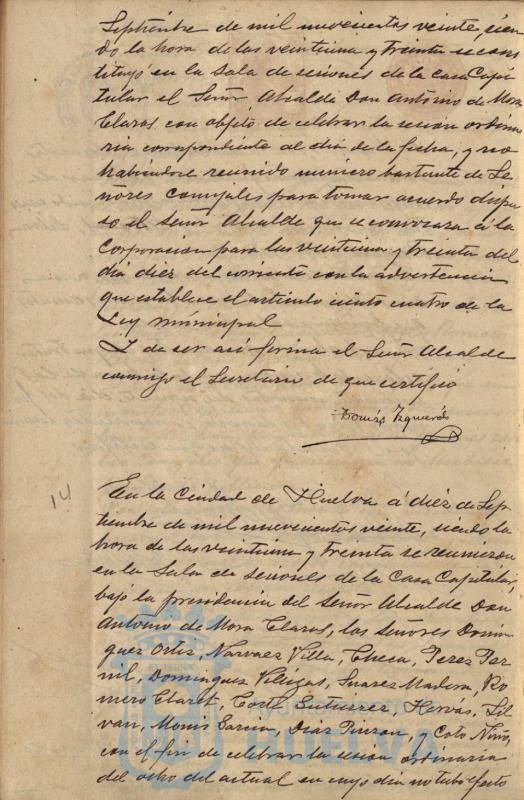 Septiembre de mil nuevecientos veinte, sien-
do la hora de las veintiuna y treinta se cons
tituyó en la Sala de sesiones de la casa Capi-
tular el Señor Alcalde Don Antonio de Mora
Claros con objeto de celebrar la sesion ordina
ria correspondiente al dia de la fecha, y no
habiendose reunido número bastante de Se-
ñores Concejales para tomar acuerdo dispu-
so el Señor Alcalde que se convocara á la
Corporacion para las veintiuna y treinta del
dia diez del corriente con la advertencia
que establece el articulo ciento cuatro de la
Ley municipal
Y de ser asi firma el Señor Alcalde
conmigo el Secretario de que certifico
Tomás Izquierdo
14
En la Ciudad de Huelva á diez de Sep-
tiembre de mil nuevecientos veinte, siendo la
hora de las veintiuna y treinta se reunieron
en la Sala de sesiones de la Casa Capitular,
bajo la presidencia del Señor Alcalde Don
Antonio de Mora Claros, los señores Domin-
guez Ortiz, Narvaez Villa, Checa, Perez Per
nil, Dominguez Villegas, Suarez Madera, Ro
mero Claret, Gutierrez, Hervás, Sil
van, Monis Garcia, Diaz Pinzon, y Coto Niño,
con el fin de celebrar la sesion ordinaria
del ocho del actual en cuyo dia no tubo efecto
HUELVA